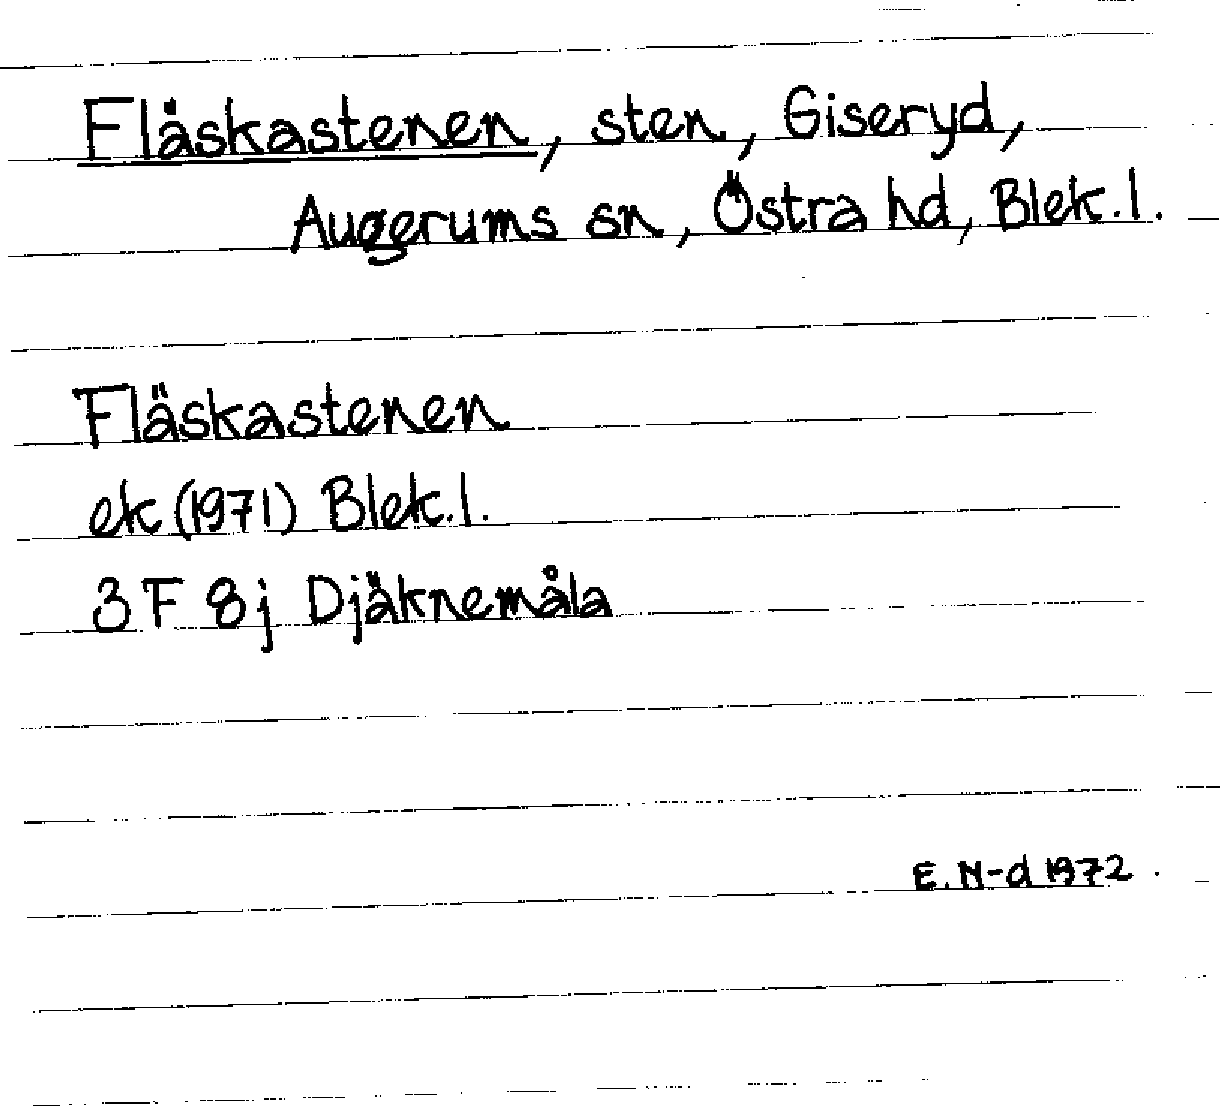 Fläskastenen, sten, Giseryd,
Augerums sn, Östra hd, Blek.l.
Fläskastenen
ek (1971) Blek.l.
3 F 8j Djäknemåla
E. N-d 1972.